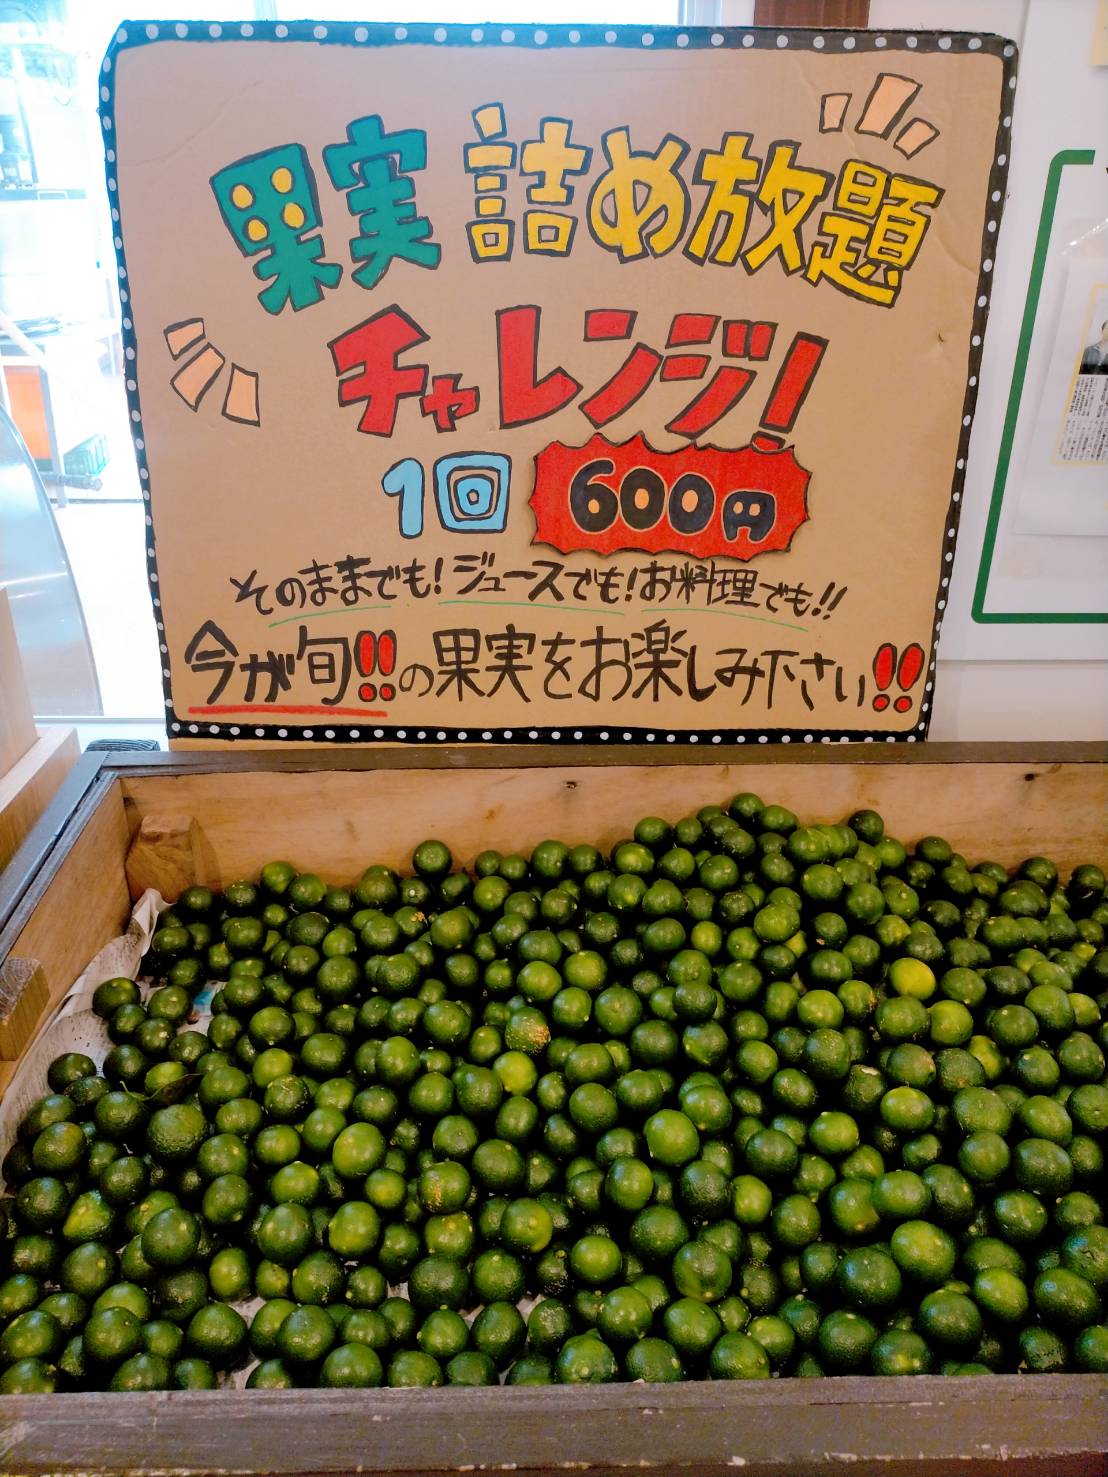 果実 詰め放題
チャレンジ！
1回 600円
そのままでも！ジュースでも！お料理でも！！
今が旬！！の果実をお楽しみ下さい！！